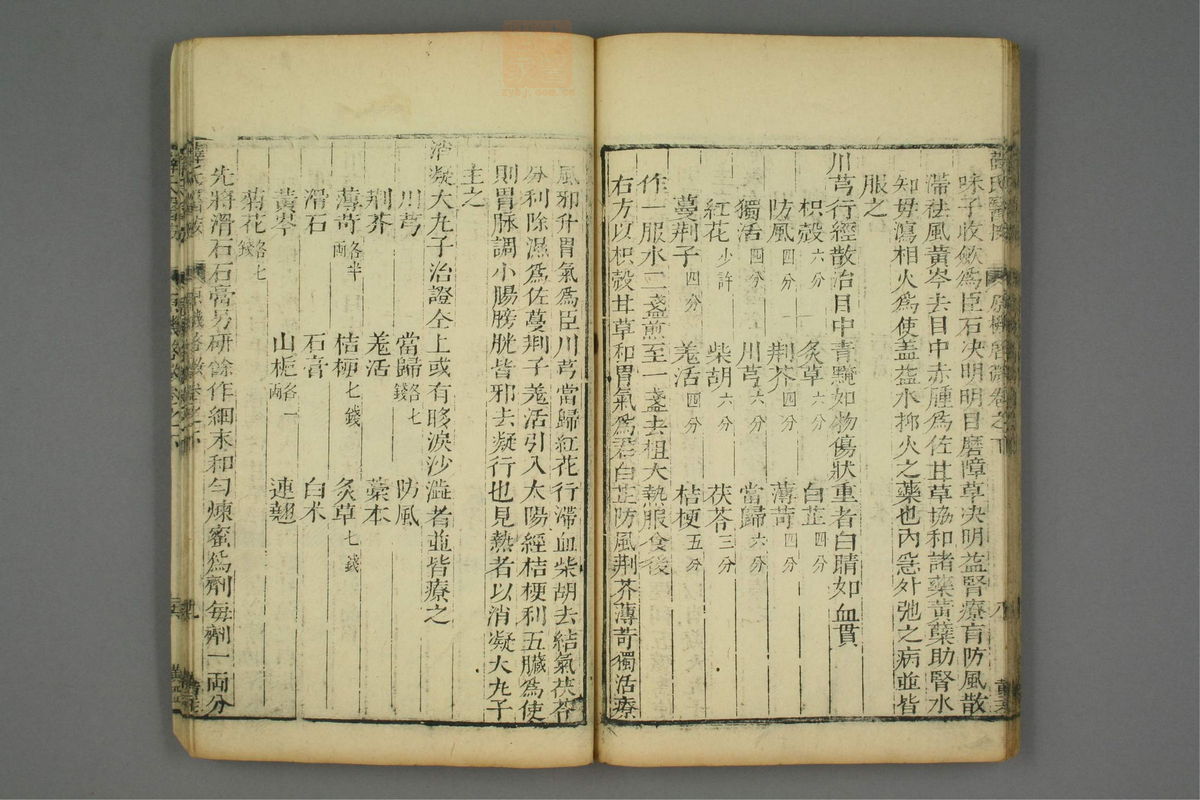 味子收斂爲臣石决明明目磨障草决明益腎療盲防風散
滯祛風黃芩去目中赤腫爲佐甘草協和諸藥黃蘗助腎水
知母瀉相火爲使盖益水抑火之藥也内急外弛之病並皆
服之
川芎行經散治目中青黯如物傷狀重者白睛如血貫
枳殻六分 炙草六分 白芷四分
防風四分 荆芥四分 薄苛四分
獨活四分 川芎六分 當歸六分
紅花少許 柴胡六分 茯苓三分
蔓荆子四分 羗活四分 桔梗五分
作一服水二盞煎至一盞去柤大熱服食後
右方以枳殻甘草和胃氣爲君白芷防風荆芥薄苛獨活療
風邪升胃氣爲臣川芎當歸紅花行滯血柴胡去結氣茯苓
分利除濕爲佐蔓荆子羗活引入太陽經桔梗利五臟爲使
則胃脉調小腸膀胱皆邪去凝行也見熱者以消凝大九子
主之
消凝大九子治證仝上或有眵淚沙澁者並皆療之
川芎 當歸各七錢 防風
荆芥 羗活 藁本
薄苛各半両 桔梗七錢 炙草七錢
滑石 石膏 白术
黃芩 山梔各一両 連翹
菊花各七錢
先將滑石石膏另研餘作細末和勻煉蜜爲劑每劑一両分